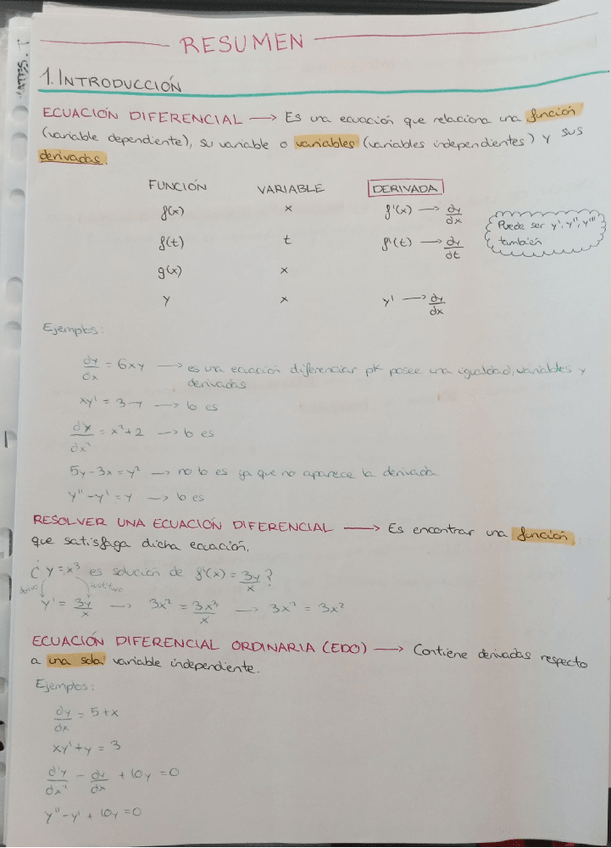 RESUMEN
1. INTRODUCCIÓN
ECUACIÓN DIFERENCIAL → Es una ecuación que relaciona una función
(variable dependiente), su variable o variables (variables independientes) y sus
derivadas.
FUNCIÓN VARIABLE DERIVADA
f(x) x f'(x) → dy/dx
f(t) t f'(t) → dy/dt
g(x) x
y x y' → dy/dx
Puede ser y', y'', y'''
también
Ejemplos:
dy/dx = 6xy → es una ecuación diferencial pk posee una igualdad, variables y
derivadas
xy' = 3-y → lo es
= x²+2 → lo es
5y-3x = y² → no lo es ya que no aparece la derivada
y''-y' = y → lo es
RESOLVER UNA ECUACIÓN DIFERENCIAL → Es encontrar una función
que satisfaga dicha ecuación.
¿y=x³ es solución de f'(x) = 3y/x?
y' = 3y/x → 3x² = 3x³/x → 3x² = 3x²
ECUACIÓN DIFERENCIAL ORDINARIA (EDO) → Contiene derivadas respecto
a una sola variable independiente.
Ejemplos:
dy/dx = 5+x
xy'+y = 3
d²y/dx² - dy/dx + 10y = 0
y''-y'+10y = 0